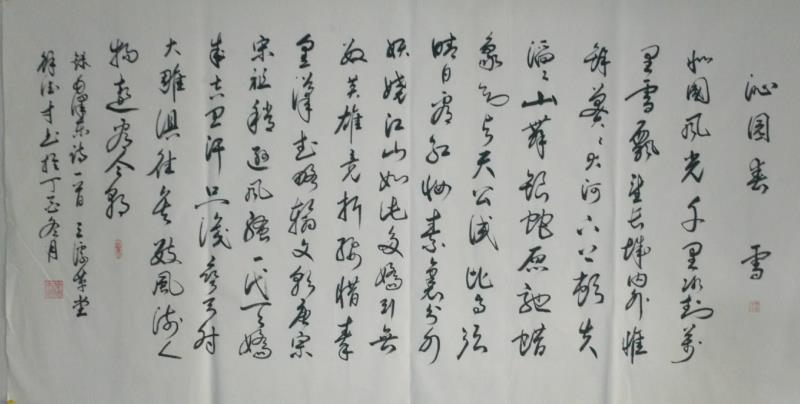 沁园春 雪
北國风光千里冰封万
里雪飘望长城内外惟
馀莽々大河上下顿失
滔々山舞银蛇原驰蜡
象欲与天公试比高须
晴日看红妆素裹分外
妖娆江山如此多娇引无
数英雄竞折腰惜秦
皇汉武略输文彩唐宗
宋祖稍逊风骚一代天娇
成吉思汗只识弯弓射
大雕俱往矣数风流人
物还看今朝
录毛泽东诗一首 三 草堂
徐德才书於丁酉冬月